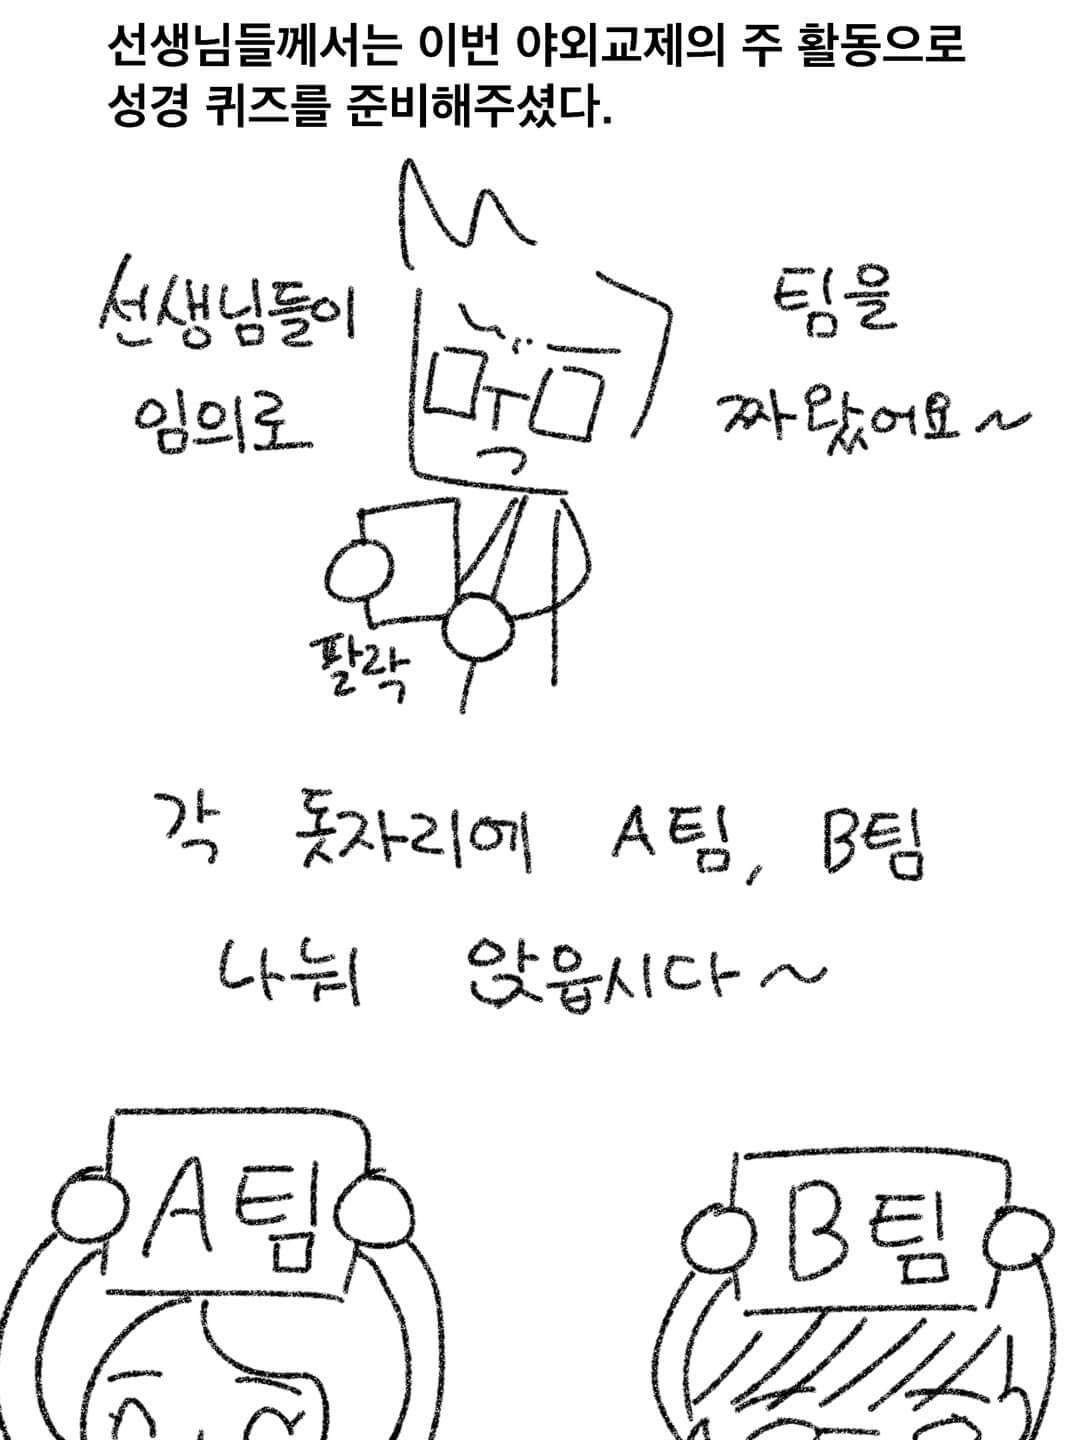 선생님들께서는 이번 야외교제의 주 활동으로
성경 퀴즈를 준비해주셨다.
선생님들이
임의로
팀을
짜왔어요~
팔락
각 돗자리에 A팀, B팀
나눠 앉읍시다~
A팀
B팀